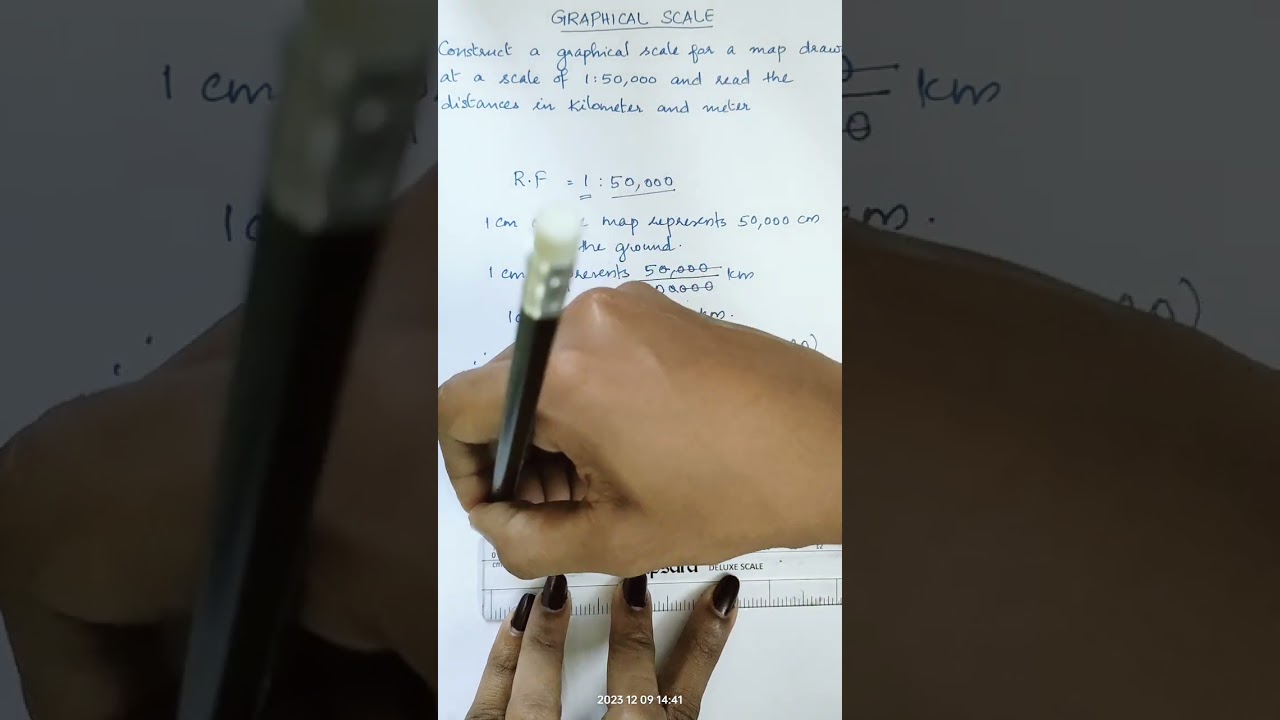 GRAPHICAL SCALE
Construct a graphical scale for a map draw
at a scale of 1:50,000 and read the
distances in Kilometer and meter
R.F = 1 : 50,000
1 cm map represents 50,000 cm
the ground.
1 cm 50,000 km
km.
0
cm
12
DELUXE SCALE
2023 12 09 14:41